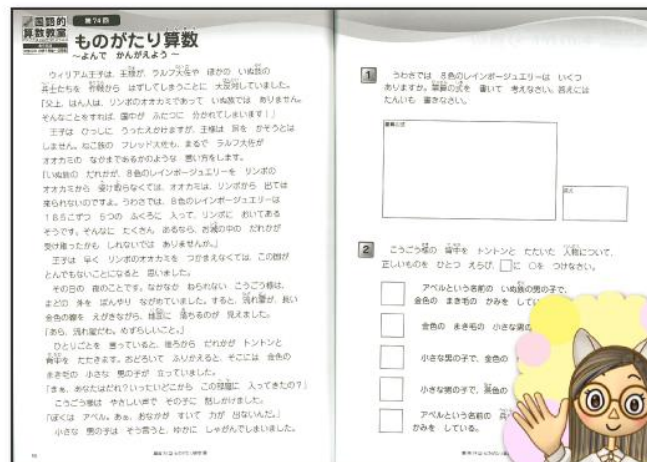 国語的
算数教室
第74回
ものがたり算数
～よんで かんがえよう～
ウィリアム王子は、王様が、ラルフ大佐や ほかの いぬ族の
兵士たちを 作戦から はずしてしまうことに 大反対していました。
「父上、はん人は、リンボのオオカミであって いぬ族では ありません。
そんなことをすれば、国中が ふたつに 分かれてしまいます！」
王子は ひっしに うったえかけますが、王様は 耳を かそうとは
しません。ねこ族の フレッド大佐も、まるで ラルフ大佐が
オオカミの なかまであるかのような 言い方をします。
「いぬ族の だれかが、8色のレインボージュエリーを リンボの
オオカミから 受け取らなくては、オオカミは、リンボから 出ては
来られないのですよ。うわさでは、8色のレインボージュエリーは
185こずつ 5つの ふくろに 入って、リンボに おいてある
そうです。そんなに たくさん あるなら、お城の中の だれかが
受け取ったかも しれないでは ありませんか。」
王子は 早く リンボのオオカミを つかまえなくては、この国が
とんでもないことになると 思いました。
その日の 夜のことです。なかなか ねられない こうごう様は、
まどの 外を ぼんやり ながめていました。すると、流れ星が、長い
金色の線を えがきながら、地面に 落ちるのが 見えました。
「あら、流れ星だわ。めずらしいこと。」
ひとりごとを 言っていると、後ろから だれかが トントンと
背中を たたきます。おどろいて ふりかえると、そこには 金色の
まき毛の 小さな 男の子が 立っていました。
「まぁ、あなたはだれ？いったいどこから この部屋に 入ってきたの？」
こうごう様は やさしい声で その子に 話しかけました。
「ぼくは アベル。あぁ、おなかが すいて 力が 出ないんだ。」
小さな 男の子は そう言うと、ゆかに しゃがんでしまいました。
1
うわさでは 8色のレインボージュエリーは いくつ
ありますか。筆算の式を 書いて 考えなさい。答えには
たんいも 書きなさい。
筆算の式
答え
2
こうごう様の 背中を トントンと たたいた 人物について、
正しいものを ひとつ えらび、□に ○を つけなさい。
アベルという名前の いぬ族の男の子で、
金色の まき毛の かみを してい
金色の まき毛の 小さな男の
小さな男の子で、金色の
小さな男の子で、茶色の
アベルという名前の 兵
かみを している。